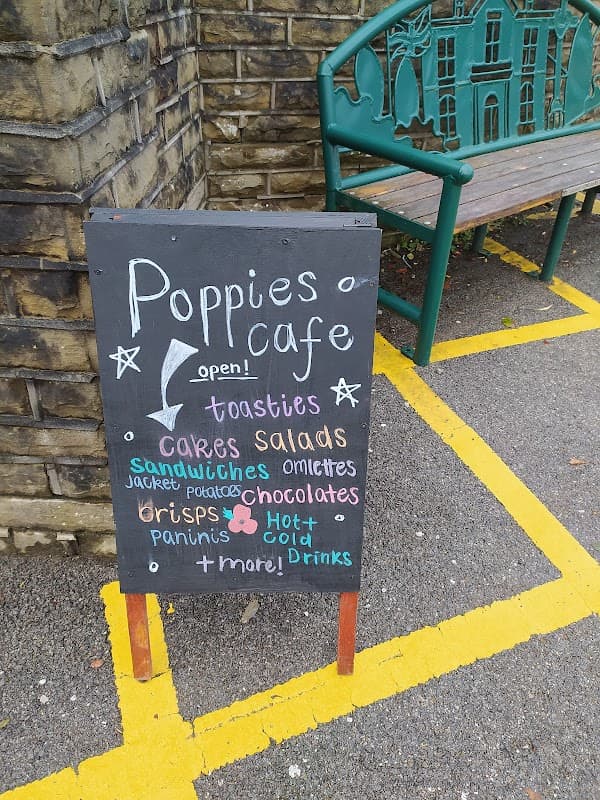 Poppies
cafe
open!
toasties
cakes salads
sandwiches omlettes
Jacket potatoes chocolates
crisps Hot +
paninis cold
Drinks
+ more!